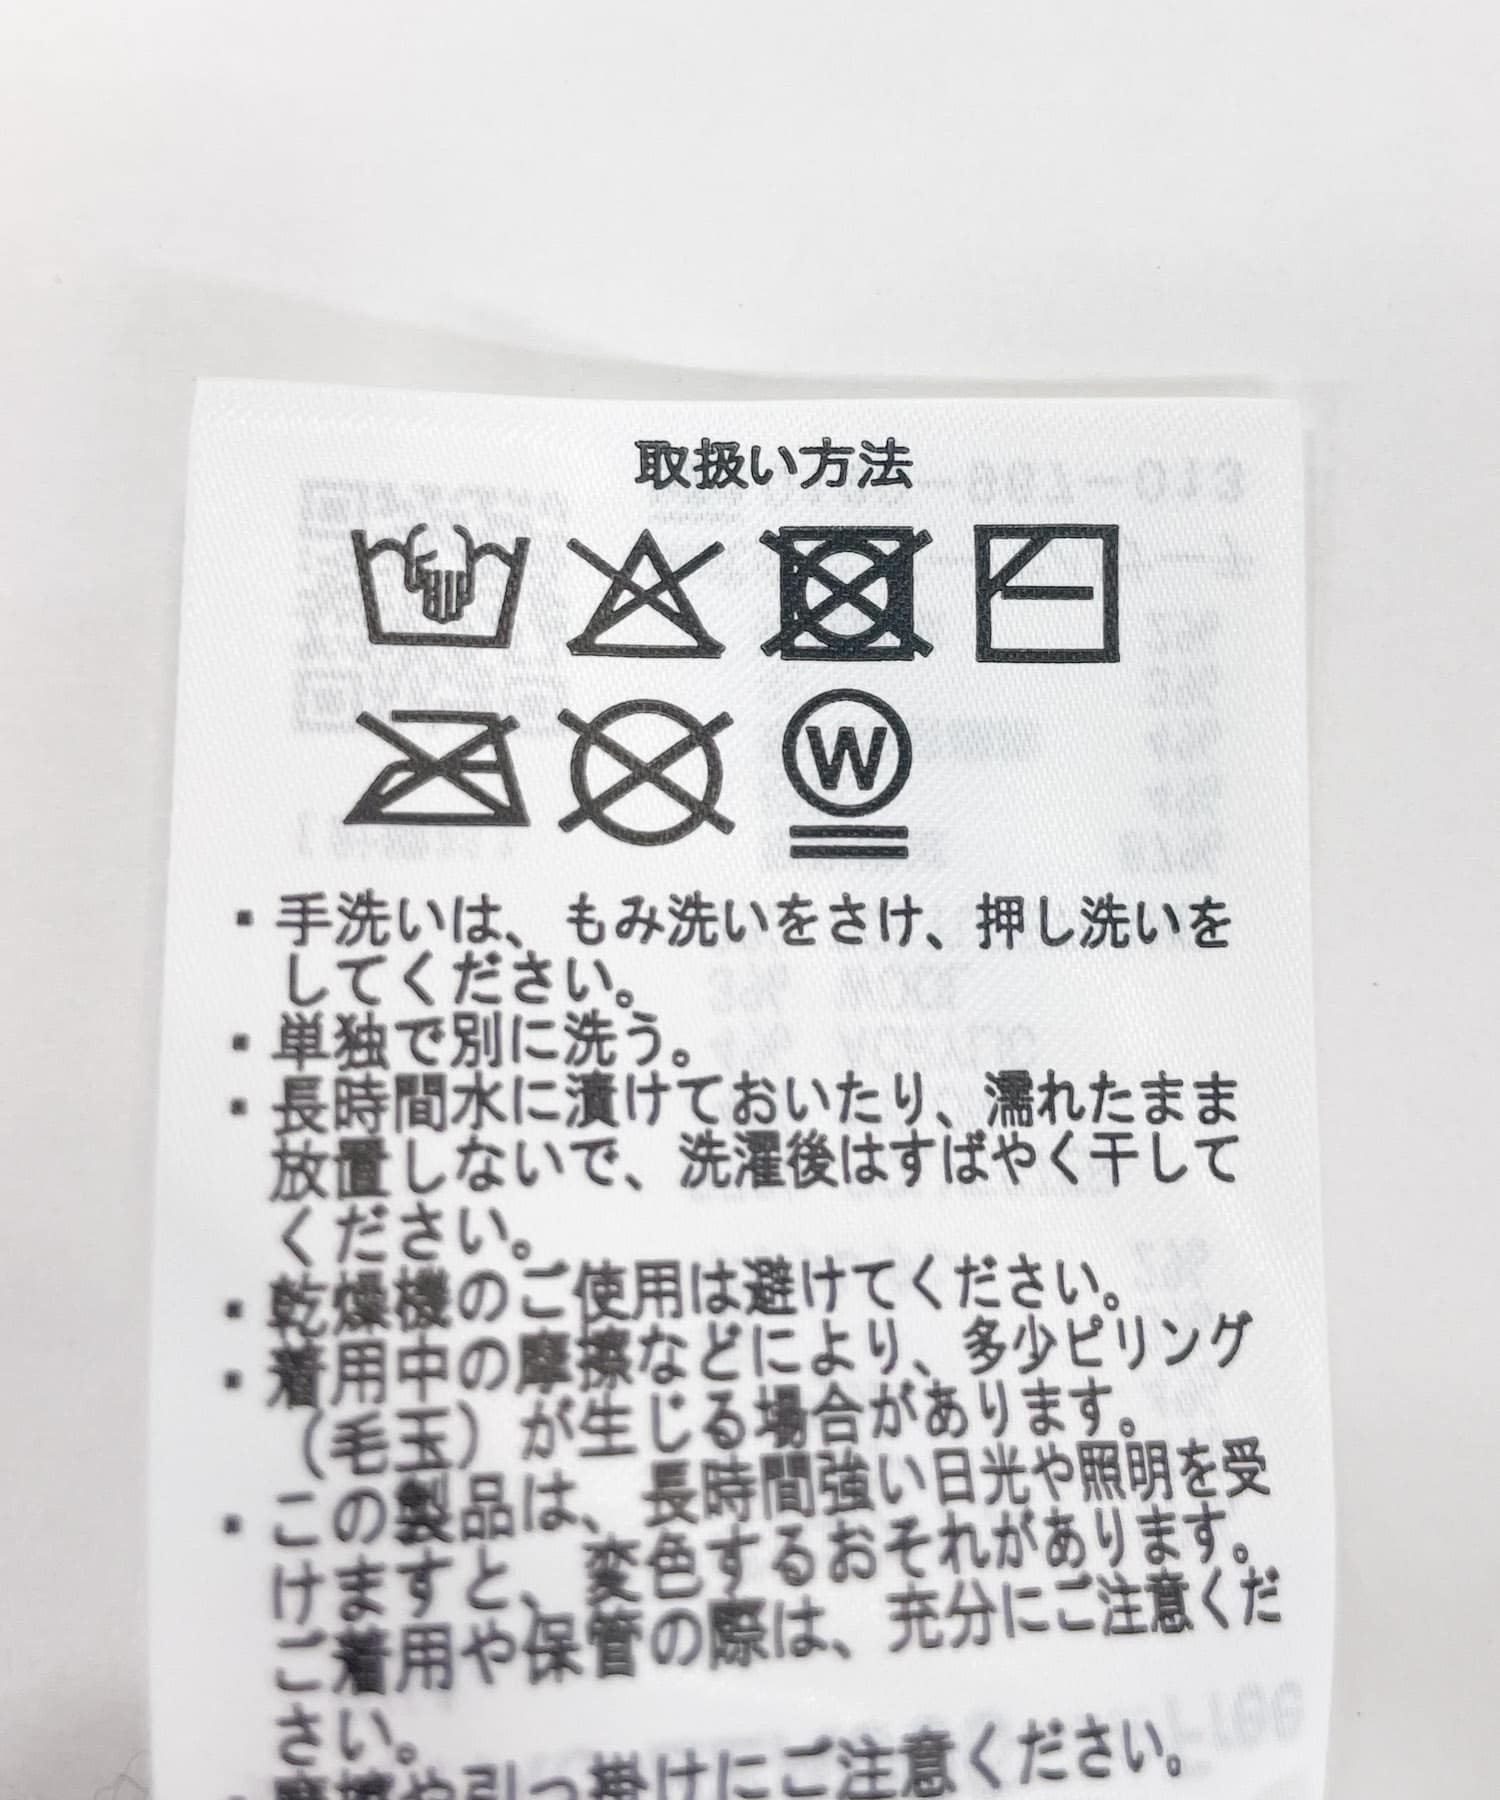 取扱い方法
W
・手洗いは、もみ洗いをさけ、押し洗いを
してください。
・単独で別に洗う。
・長時間水に漬けておいたり、濡れたまま
放置しないで、洗濯後はすばやく干して
ください。
・乾燥機のご使用は避けてください。
・着用中の摩擦などにより、多少ピリング
（毛玉）が生じる場合があります。
・この製品は、長時間強い日光や照明を受
けますと、変色するおそれがあります。
ご着用や保管の際は、充分にご注意くだ
さい。
や引っ掛けにご注意ください。